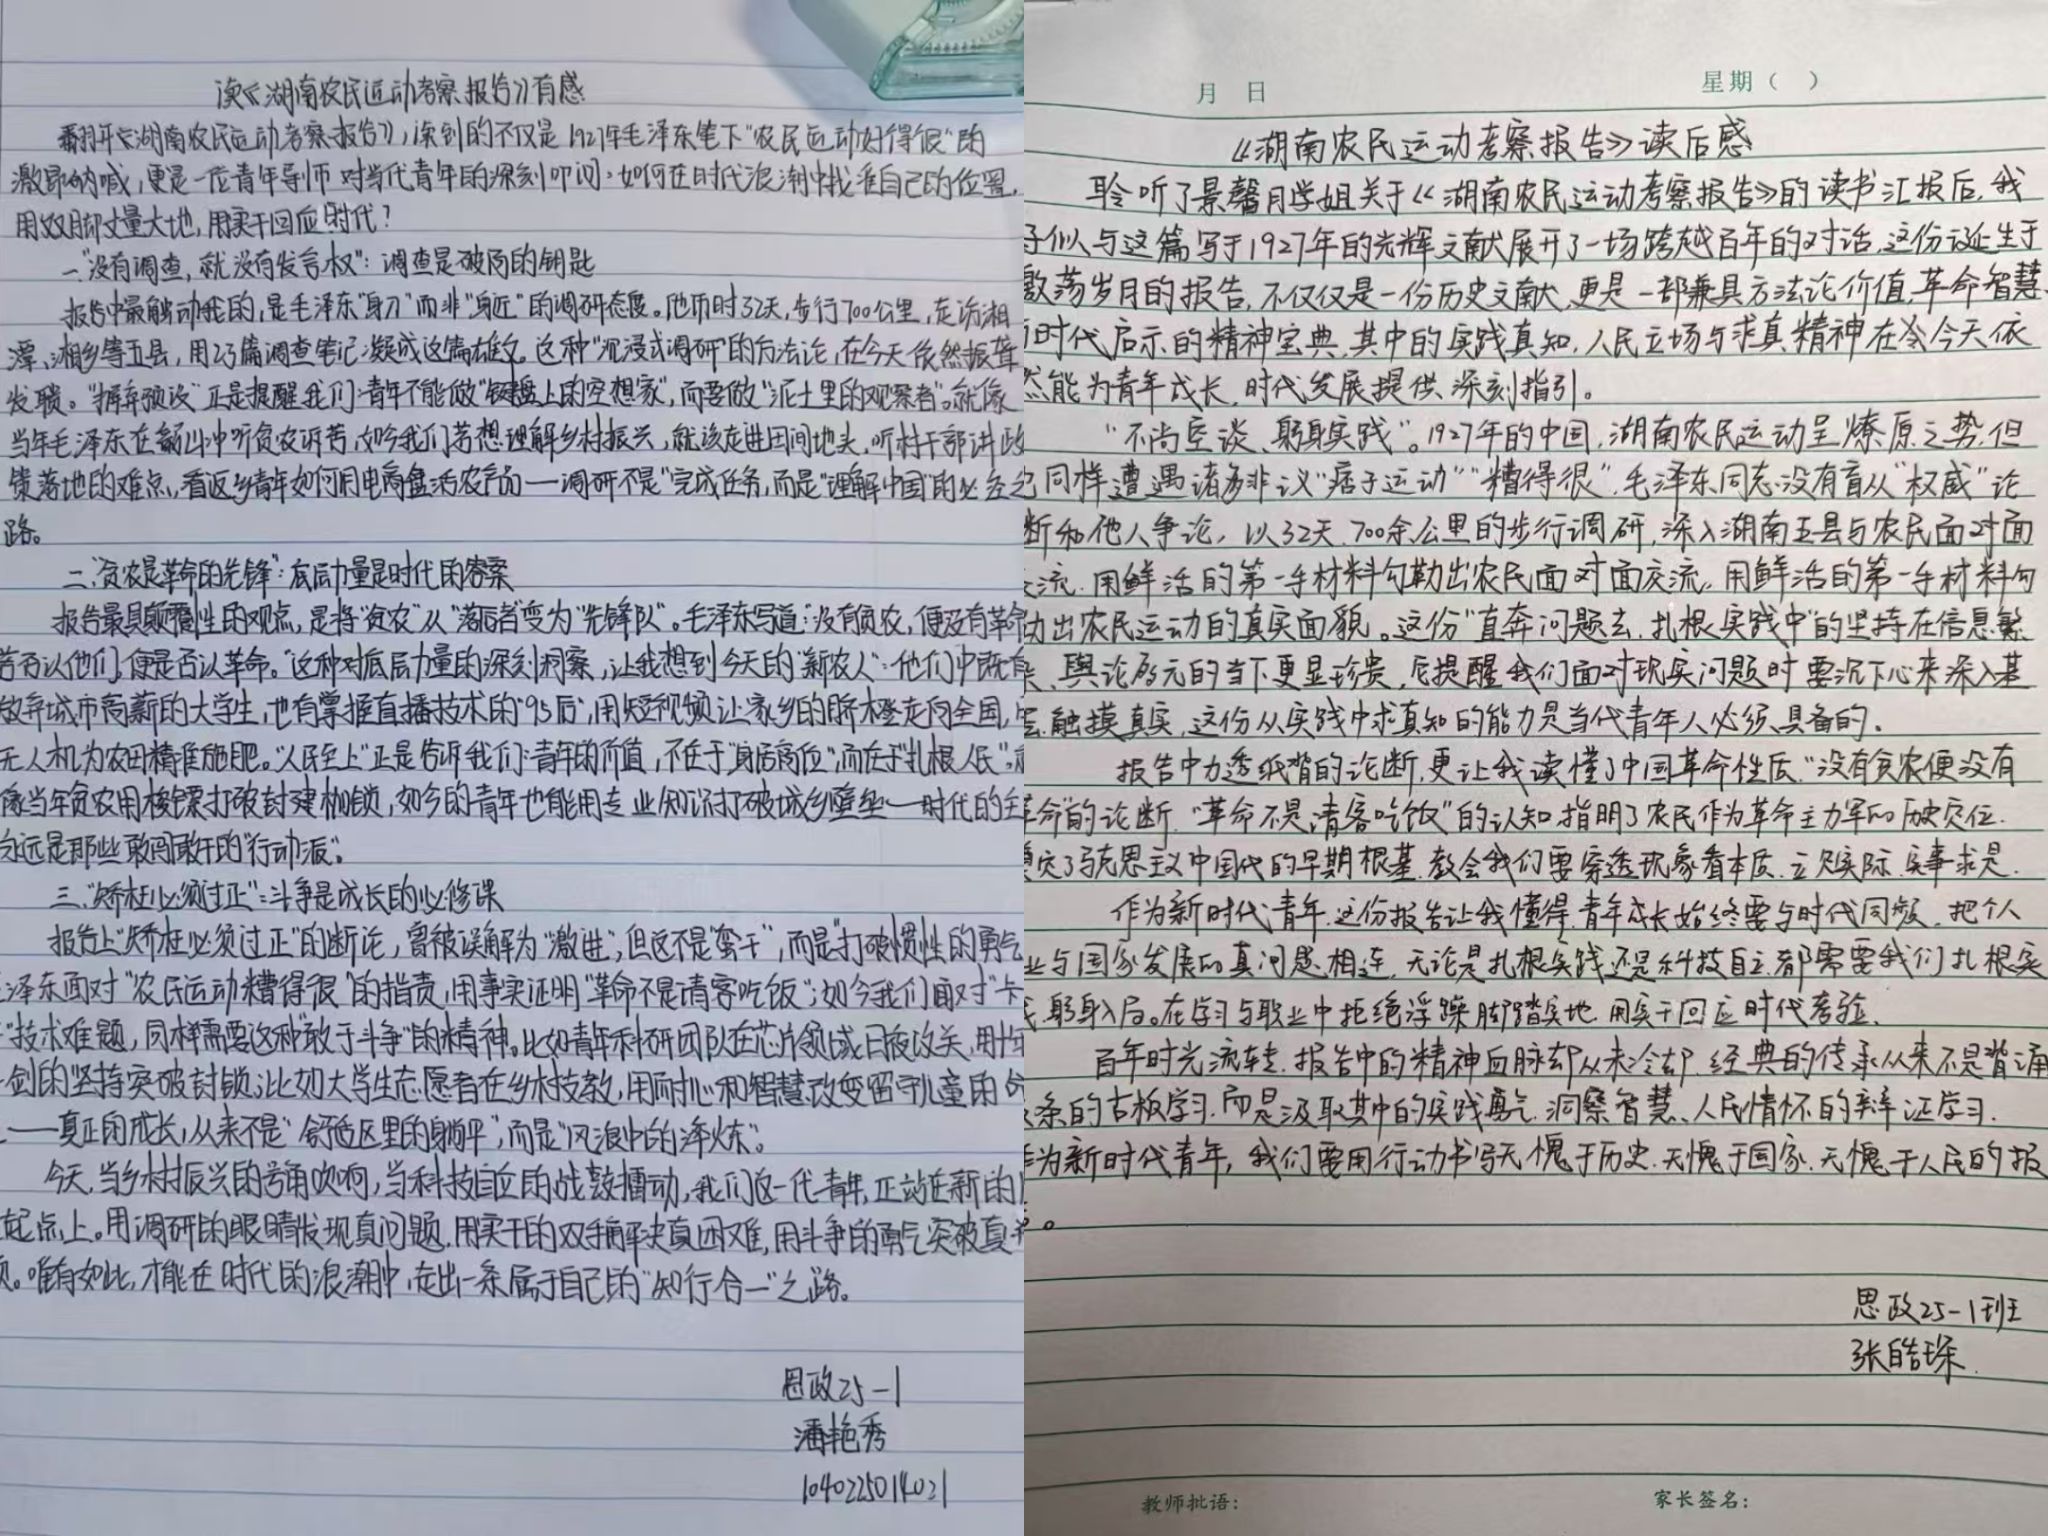 读《湖南农民运动考察报告》有感
翻开《湖南农民运动考察报告》，读到的不仅是1927年毛泽东笔下"农民运动好得很"的
激昂呐喊，更是一位青年导师对当代青年的深刻叩问：如何在时代浪潮中找准自己的位置，
用双脚丈量大地，用实干回应时代？
一、"没有调查，就没有发言权"：调查是破局的钥匙
报告中最触动我的，是毛泽东"身入"而非"身近"的调研态度。他历时32天，步行700公里，走访湘
潭、湘乡等五县，用23篇调查笔记凝成这篇雄文。这种"沉浸式调研"的方法论，在今天依然振聋
发聩。"摒弃预设"正是提醒我们：青年不能做"键盘上的空想家"，而要做"泥土里的观察者"。就像
当年毛泽东在韶山冲听贫农诉苦，如今我们若想理解乡村振兴，就该走进田间地头，听村干部讲政
策落地的难点，看返乡青年如何用电商盘活农产品——调研不是"完成任务，而是"理解中国"的必经之
路。
二、"贫农是革命的先锋"：底层力量是时代的答案
报告最具颠覆性的观点，是将"贫农"从"落后者"变为"先锋队"。毛泽东写道："没有贫农，便没有革命
若否认他们，便是否认革命。"这种对底层力量的深刻洞察，让我想到今天的"新农人"：他们中既有
放弃城市高薪的大学生，也有掌握直播技术的"95后"，用短视频让家乡的脐橙走向全国，
无人机为农田精准施肥。"人民至上"正是告诉我们：青年的价值，不在于"身居高位"，而在于"扎根人民"。
像当年贫农用梭镖打破封建枷锁，如今的青年也能用专业知识打破城乡壁垒——时代的主
永远是那些敢闯敢干的"行动派"。
三、"矫枉必须过正"：斗争是成长的必修课
报告上"矫枉必须过正"的断论，曾被误解为"激进"，但这不是"蛮干"，而是"打破惯性的勇气
泽东面对"农民运动糟得很"的指责，用事实证明"革命不是请客吃饭"；如今我们面对"卡
"技术难题，同样需要这种"敢于斗争"的精神。比如青年科研团队在芯片领域日夜攻关，用十年
一剑的坚持突破封锁；比如大学生志愿者在乡村支教，用耐心和智慧改变留守儿童的命
——真正的成长，从来不是"舒适区里的躺平"，而是"风浪中的淬炼"。
今天，当乡村振兴的号角吹响，当科技自立的战鼓擂动，我们这一代青年，正站在新的
起点上。用调研的眼睛发现真问题，用实干的双手解决真困难，用斗争的勇气突破真
。唯有如此，才能在时代的浪潮中，走出一条属于自己的"知行合一"之路。
思政25-1
潘艳秀
1040225014021
月 日 星期（ ）
《湖南农民运动考察报告》读后感
聆听了景馨月学姐关于《湖南农民运动考察报告》的读书汇报后，我
好似与这篇写于1927年的光辉文献展开了一场跨越百年的对话，这份诞生于
激荡岁月的报告，不仅仅是一份历史文献，更是一部兼具方法论价值，革命智慧、
时代启示的精神宝典，其中的实践真知，人民立场与求真精神在今天依
然能为青年成长，时代发展提供深刻指引。
"不尚空谈、躬身实践"。1927年的中国，湖南农民运动呈燎原之势，但
也同样遭遇诸多非议"痞子运动""糟得很"，毛泽东同志没有盲从"权威"论
断和他人争论，以32天、700余公里的步行调研，深入湖南五县与农民面对面
交流，用鲜活的第一手材料勾勒出农民面对面交流，用鲜活的第一手材料勾
勒出农民运动的真实面貌。这份"直奔问题去，扎根实践中"的坚持在信息繁
杂、舆论多元的当下更显珍贵，它提醒我们面对现实问题时要沉下心来深入基
层，触摸真实，这份从实践中求真知的能力是当代青年人必须具备的。
报告中力透纸背的论断，更让我读懂了中国革命性质，"没有贫农便没有
革命"的论断，"革命不是请客吃饭"的认知，指明了农民作为革命主力军的历史定位，
奠定了马克思主义中国代的早期根基，教会我们要穿透现象看本质，立足实际，实事求是。
作为新时代青年，这份报告让我懂得，青年成长始终要与时代同频，把个人
业与国家发展的真问题相连，无论是扎根实践还是科技自立，都需要我们扎根实
践，躬身入局。在学习与职业中拒绝浮躁，脚踏实地，用实干回应时代考验。
百年时光流转，报告中的精神血脉却从未冷却，经典的传承从来不是背诵
教条的古板学习，而是汲取其中的实践勇气、洞察智慧、人民情怀的辩证学习。
作为新时代青年，我们要用行动书写无愧于历史、无愧于国家、无愧于人民的报
。
思政25-1班
张皓琛
教师批语： 家长签名：